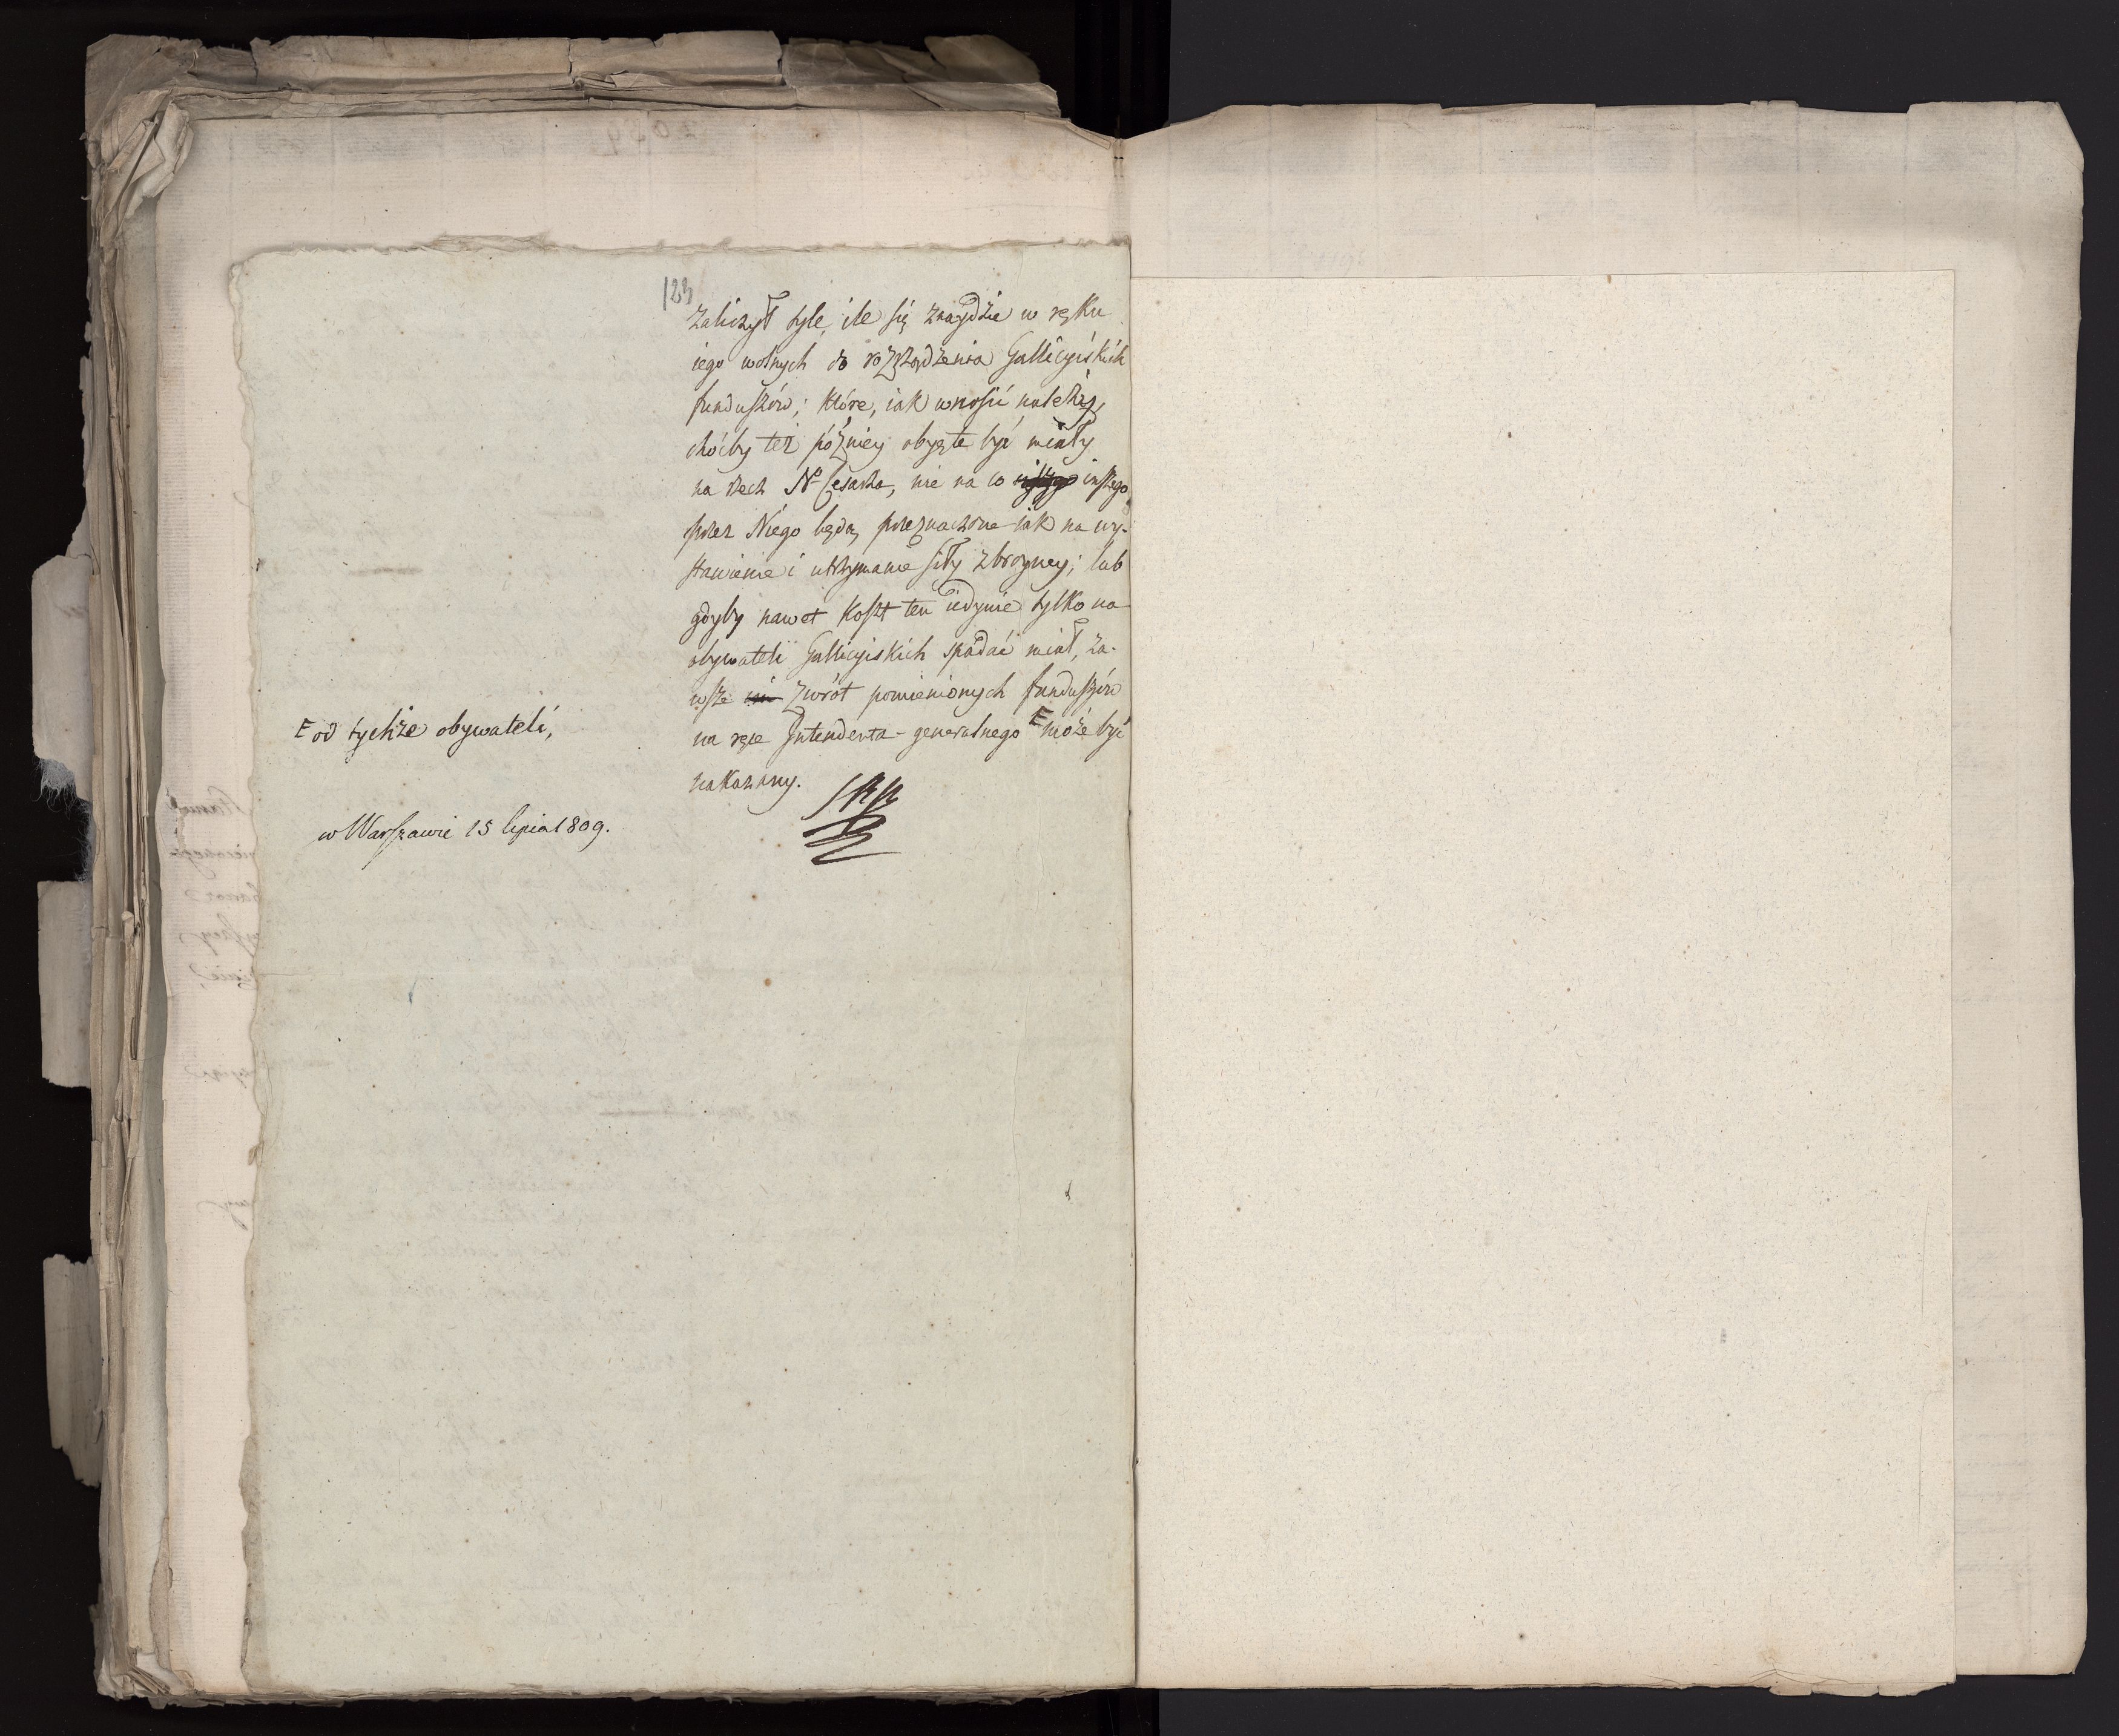 123
zaliczył tyle, ile się znaydzie w ręku
iego wolnych do rozrządzenia Gallicyiskich
funduszów; które, iak wnosić należy,
choćby też późniey obięte być miały
na rzecz No Cesarza, nie na co inszego
przez Niego będą przeznaczone iak na wy-
stawienie i utrzymanie siły zbroyney; lub
gdyby nawet koszt ten iedynie tylko na
obywateli Gallicyiskich spadać miał, za-
wsze zwrót pomienionych funduszów
na ręce Intendenta-generalnego E może być
nakazany.
E od tychże obywateli,
w Warszawie 15 lipca 1809.